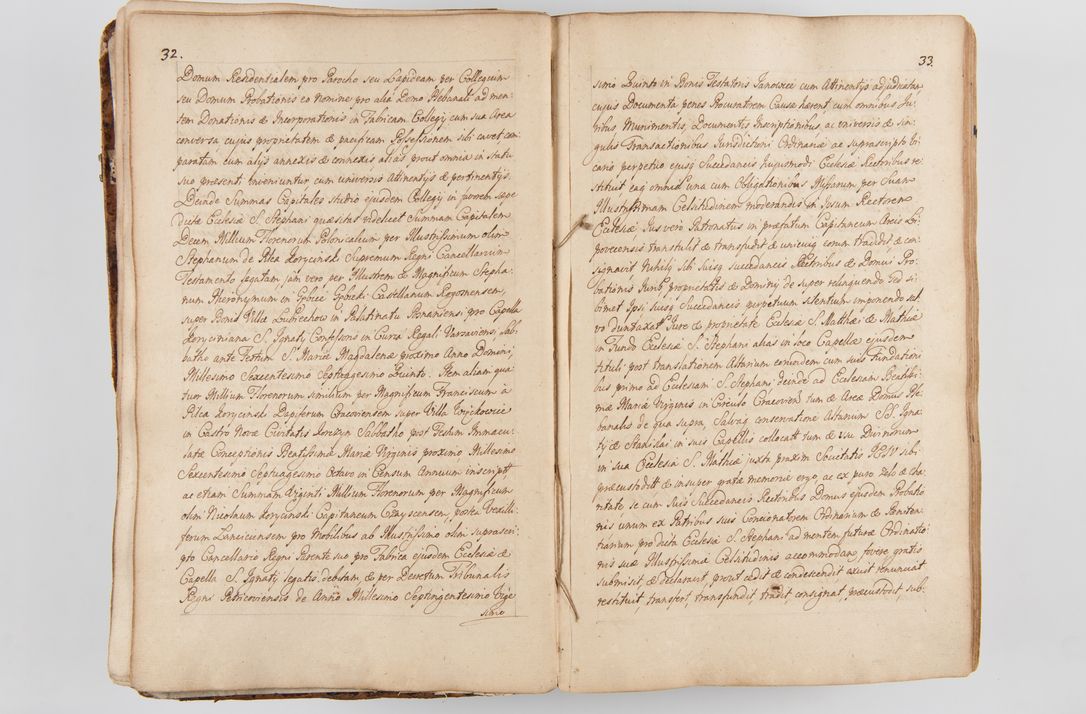 32.
Domum Residentialem pro Parocho seu Lapideam per Collegium
seu Domum Probationis eo Nomine pro alia Domo Plebanali ad men-
tem Donationis & Incorporationis in Fabricam Collegij cum sua Area
conversa, cujus proprietatem & pacificam Possessionem sibi cavet, com
paratam cum alijs annexis & connexis alias prout omnia in statu
suo præsenti inveniuntur cum universis Attinentijs & pertinentijs.
Deinde Summas Capitales studio ejusdem Collegij in favorem sæpe
dictæ Ecclesiæ S. Stephani quæsitas videlicet Summam Capitalem
Decem Millium Florenorum Polonicalium per Illustrissimum olim
Stephanum de Pilca Koryciński Supremum Regni Cancellarium
Testamento legatam jam vero per Illustrem & Magnificum Stepha-
num Hieronymum in
Castellanum Rogosnensem,
super Bonis Villæ
in Palatinatu Posnaniensi, pro Capella
Koryciniana S. Ignatij Confessoris in Curia Regali Varsaviensi, Sab-
batho ante Festum S. Mariæ Magdalenæ proximo Anno Domini,
Millesimo Sexcentesimo Septuagesimo Quinto. Item aliam qua
tuor Millium Florenorum similium per Magnificum Franciscum à
Pilca Koryciński Dapiferum Cracoviensem super Villa
in Castro Novæ Civitatis Korczyn Sabbatho post Festum Immacu-
latæ Conceptionis Beatissimæ Mariæ Virginis proximo Millesimo
Sexcentesimo Septuagesimo Octavo in Censum Annuum inscript,
ac etiam Summam Viginti Millium Florenorum per Magnificum
olim Nicolaum Koryciński Capitaneum
postea Vexilli-
ferum Lancicensem pro Nobilibus ab Illustrissimo olim suprascri-
pto Cancellario Regni Parente suo pro Fabrica ejusdem Ecclesiæ &
Capella S. Ignatij legatis debitam, & per Decretum Tribunalis
Regni Petricoviensis de Anno Millesimo Septingentesimo Vige
simo
33
simo Quinto in Bonis Testatoris Janowice cum Attinentijs adjudicatam
cujus Documenta penes Procuratorem Causæ hærent cum omnibus Ju-
ribus, Munimentis, Documentis Inscriptionibus, ac universis & sin-
gulis Transactionibus Jurisdictioni Ordinariæ ac suprascripto Vi-
cario perpetuo ejusq Succedaneis hujusmodi Ecclesiæ Rectoribus re
stituit eaq omnia una cum Obligationibus Missarum per Suam
Illustrissimam Celsitudinem moderandis in Ipsum Rectorem
Ecclesiæ Jus vero Patronatus in præfatum Capitaneum Arcis Li-
poviecensis transtulit & transfudit & unicuiq eorum tradidit & con-
signavit Nihilq Sibi Suisq Succedaneis Rectoribus & Domui Pro-
bationis Juris proprietatis & Dominij de super relinquendo sed si-
bimet Ipsi, suisq Succedaneis perpetuum silentium imponendo sal-
vo duntaxat Jure & proprietate Ecclesiæ S. Matthæi & Mathiæ
in Fundo Ecclesiæ S. Stephani alias in loco Capellæ ejusdem
tituli post translationem Altarium eorundem cum suis Fundationi
bus primo ad Ecclesiam S. Stephani deinde ad Ecclesiam Beatissi-
mæ Mariæ Virginis in Circulo Cracovien tum & Areæ Domus Ple-
banalis de qua supra, Salvaq conservatione Altarium SS. Igna-
tij & Stanislai in suis Capellis collocatt tum & usu Divinorum
in sua Ecclesia S. Mathiæ juxta praxim Societatis JESU sibi
præcustodit & insuper gratæ memoriæ ergo, ac ex puro zelo & cha-
ritate se cum Suis Succedaneis Rectoribus Domus ejusdem Probatio
nis unum ex Patribus suis Concionatorem Ordinarium & Pœniten-
tiarium pro dicta Ecclesia S. Stephani ad mentem futuræ Ordinatio-
nis suæ Illustrissimæ Celsitudinis accommodans fovere gratis
submisit, & declaravit, prout cedit & condescendit exuit renunciat
restituit, transfert, transfundit tradit, consignat, præcustodit, sub-